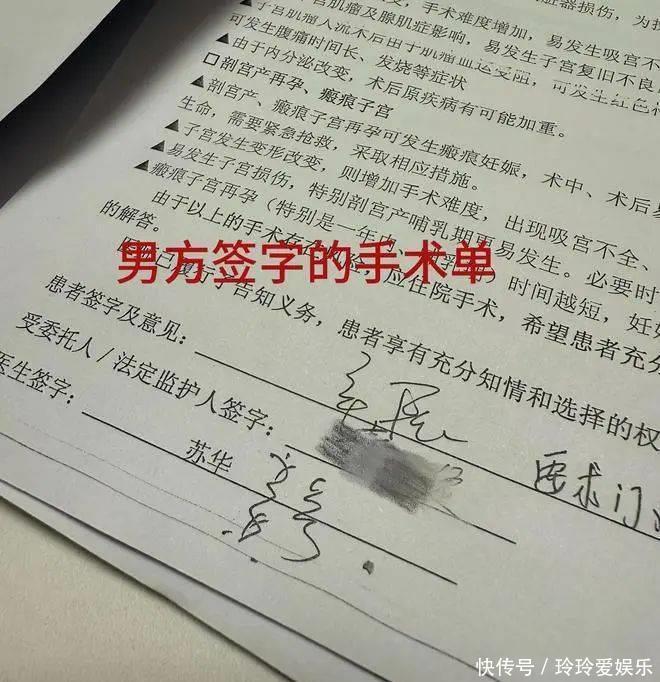 手术难度增加，易发生脏器损伤，为抢
▲子宫肌瘤及腺肌症影响，易发生吸宫不
▲子宫肌瘤人流术后由于肌瘤血运受阻，可发生红色
易发生子宫复旧不良
可发生腹痛时间长、发烧等症状
▲由于内分泌改变，术后原疾病有可能加重。
□剖宫产再孕、瘢痕子宫
▲剖宫产、瘢痕子宫再孕可发生瘢痕妊娠，术中、术后易
生命，需要紧急抢救，采取相应措施。
▲子宫发生变形改变，则增加手术难度，出现吸宫不全、
▲易发生子宫损伤，特别剖宫产哺乳期更易发生。必要时
▲瘢痕子宫再孕（特别是一年内 时间越短，妊娠
由于以上的手术 风险，应住院手术，希望患者充分
的解答。
男方签字的手术单
医院已履行了告知义务，患者享有充分知情和选择的权
患者签字及意见：
要求门
受委托人／法定监护人签字：
医生签字：
苏华
快传号／玲玲爱娱乐